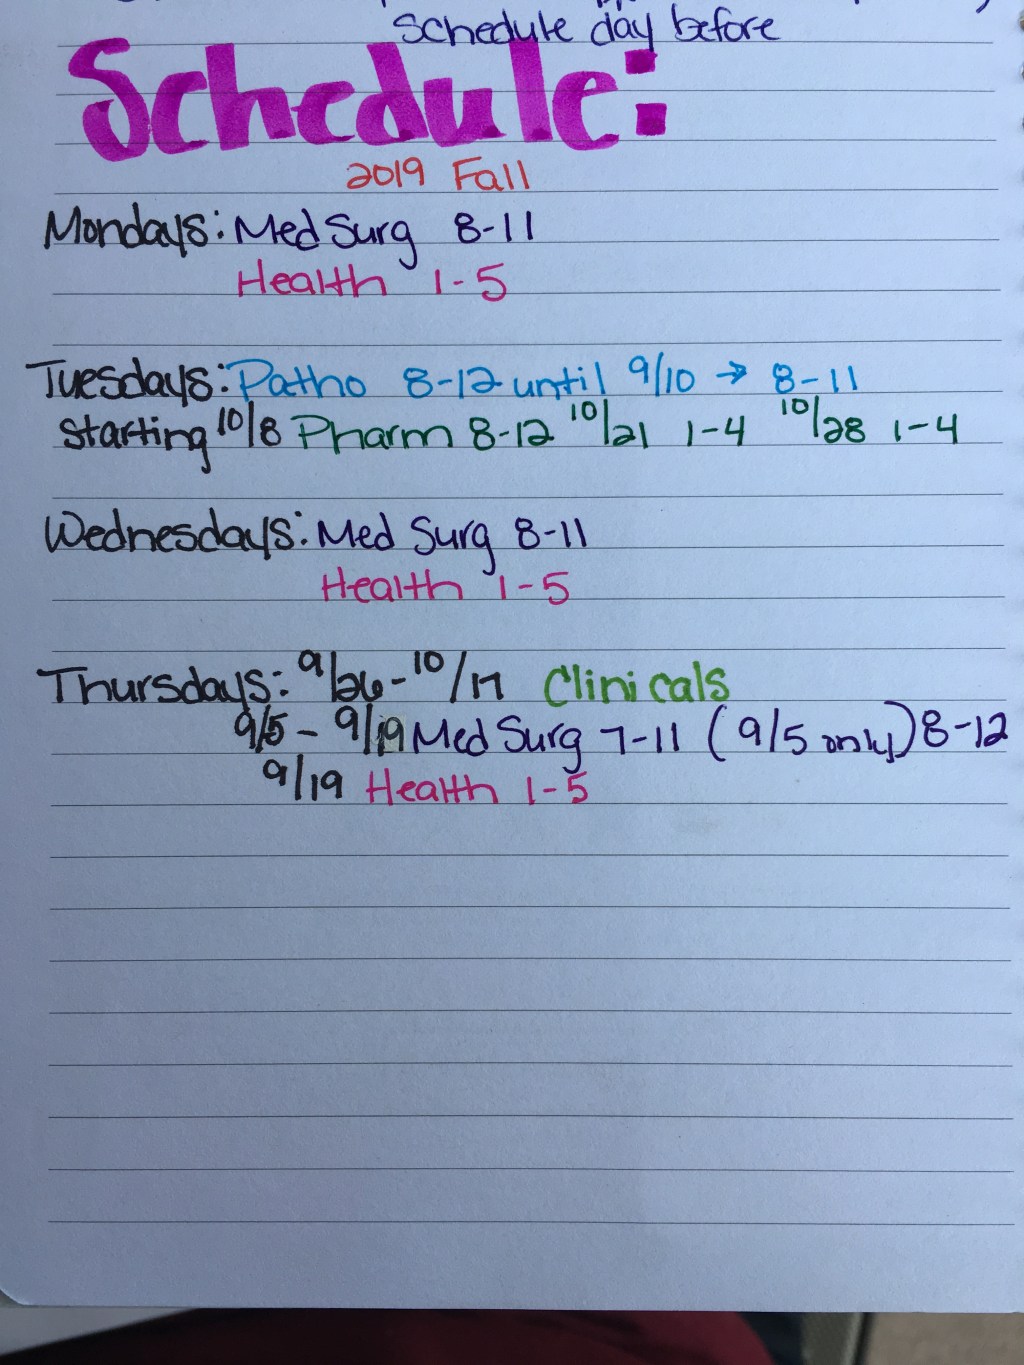 Schedule day before
Schedule:
2019 Fall
Mondays: Med Surg 8-11
Health 1-5
Tuesdays: Patho 8-12 until 9/10 → 8-11
starting 10/8 Pharm 8-12 10/21 1-4 10/28 1-4
Wednesdays: Med Surg 8-11
Health 1-5
Thursdays: 9/26-10/17 Clinicals
9/5 - 9/19 Med Surg 7-11 (9/5 only) 8-12
9/19 Health 1-5